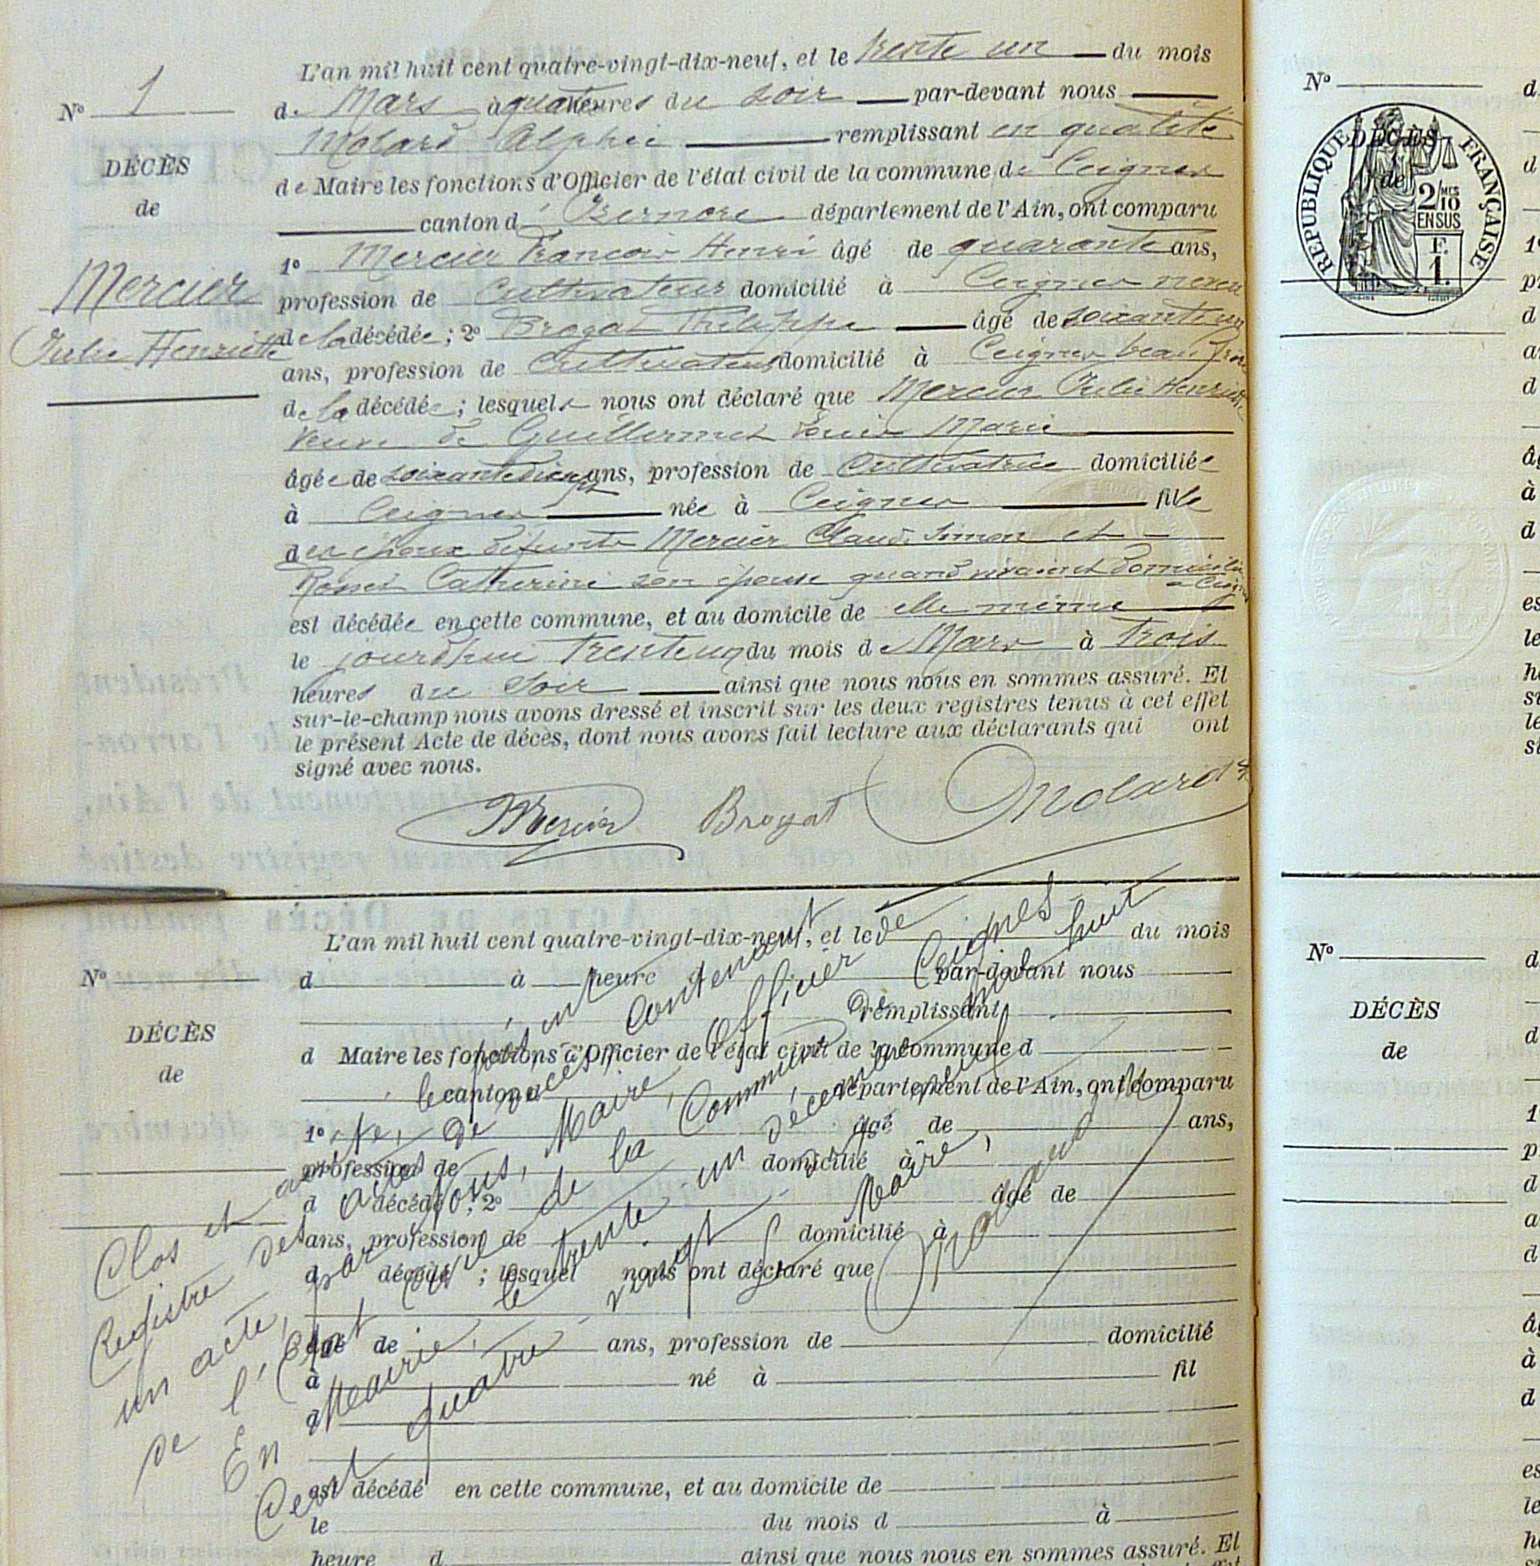 N° 1
DÉCÈS
de
Mercier
Julie Henriette
L'an mil huit cent quatre-vingt-dix-neuf, et le trente un du mois
de Mars à quatre heures du soir par-devant nous
Molard Alphée remplissant en qualité
de Maire les fonctions d'Officier de l'état civil de la commune de Ceignes
canton d' Izernore département de l'Ain, ont comparu
1° Mercier François Henri âgé de quarante ans,
profession de Cultivateur domicilié à Ceignes neveu
de la décédée ; 2° Broyat Philippe âgé de soixante un
ans, profession de Cultivateur domicilié à Ceignes beau frère
de la décédée ; lesquels nous ont déclaré que Mercier Julie Henriette
veuve de Guillermet Louis Marie
âgée de soixante dix ans, profession de Cultivatrice domiciliée
à Ceignes née à Ceignes fille
des époux défunts Mercier Claude Simon et
Catherine son épouse quand vivaient domiciliés
est décédée en cette commune, et au domicile de elle même
le jourd'hui trente un du mois de Mars à Trois
heures du Soir ainsi que nous nous en sommes assuré. Et
sur-le-champ nous avons dressé et inscrit sur les deux registres tenus à cet effet
le présent Acte de décès, dont nous avons fait lecture aux déclarants qui ont
signé avec nous.
Mercier Broyat Molard
N°
DÉCÈS
de
L'an mil huit cent quatre-vingt-dix-neuf, et le du mois
d à heure d par-devant nous
remplissant
d Maire les fonctions d'Officier de l'état civil de la commune d
canton d département de l'Ain, ont comparu
1° âgé de ans,
profession de domicilié à
d décédé ; 2° âgé de
ans, profession de domicilié à
d décédé ; lesquel nous ont déclaré que
âgé de ans, profession de domicilié
à né à fil
d
est décédé en cette commune, et au domicile de
le du mois d à
heure d ainsi que nous nous en sommes assuré. Et
Clos et arrêté, le présent
Registre des actes de décès contenant
un acte, par Nous, Maire, officier
de l'Etat Civil de la Commune de Ceignes
En Mairie, le trente un décembre mil huit
Cent quatre-vingt dix neuf
Le Maire,
Molard
N°
RÉPUBLIQUE FRANÇAISE
2/10
EN SUS
F.
1.
DÉCÈS
de
N°
DÉCÈS
de